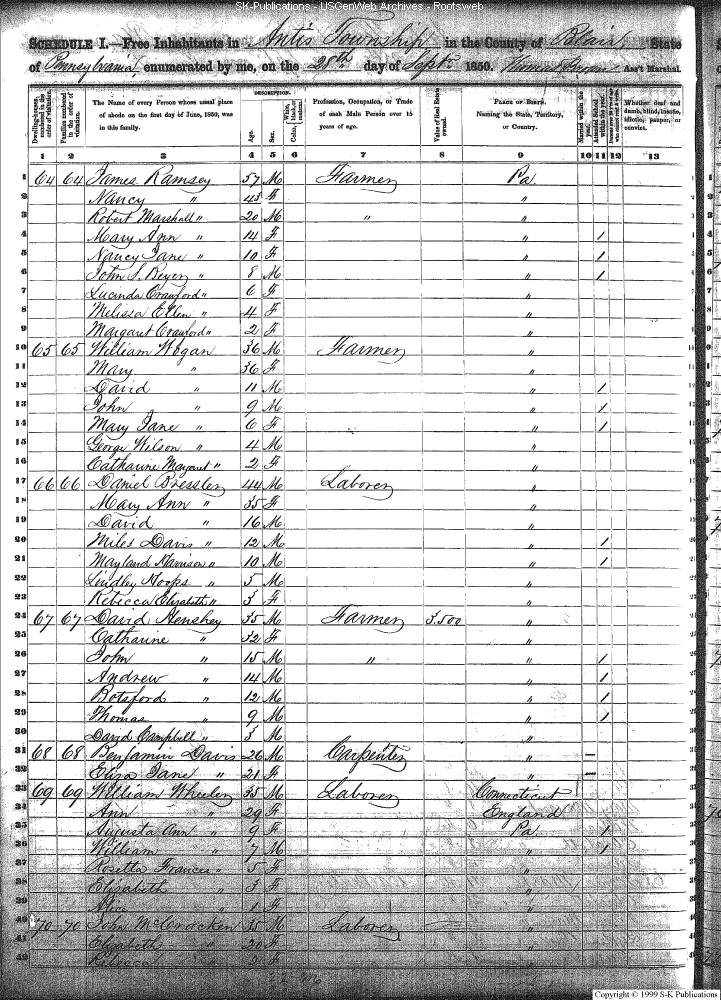 SK-Publications - USGenWeb Archives - Rootsweb
SCHEDULE I.—Free Inhabitants in Antis Township in the County of Blair, State
of Pennsylvania, enumerated by me, on the 28th day of Sept. 1850. Ass't Marshal.
Dwelling-houses numbered in the order of visitation.
Families numbered in the order of visitation.
The Name of every Person whose usual place of abode on the first day of June, 1850, was in this family.
DESCRIPTION.
Age.
Sex.
Color,
Profession, Occupation, or Trade of each Male Person over 15 years of age.
Value of Real Estate owned.
PLACE OF BIRTH. Naming the State, Territory, or Country.
Married within the year.
Attended School within the year.
Whether deaf and dumb, blind, insane, idiotic, pauper, or convict.
1 2 3 4 5 6 7 8 9 10 11 12 13
1 64 64 James Ramsey 57 M Farmer Pa.
2 Nancy " 43 F "
3 Robert Marshall " 20 M " "
4 Mary Ann " 14 F " /
5 Nancy Jane " 10 F " /
6 John S. Beyer " 8 M " /
7 Lucinda Crawford " 6 F "
8 Melissa Ellen " 4 F "
9 Margaret Crawford " 2 F "
10 65 65 William Wogan 36 M Farmer "
11 Mary " 36 F "
12 David " 11 M " /
13 John " 9 M " /
14 Mary Jane " 6 F " /
15 George Wilson " 4 M "
16 Catharine Margaret " 2 F "
17 66 66 Daniel Bressler 44 M Laborer "
18 Mary Ann " 35 F "
19 David " 16 M "
20 Miles Davis " 12 M " /
21 Mayland Harrison " 10 M " /
22 Lindley Hoops " 5 M "
23 Rebecca Elizabeth " 3 F "
24 67 67 David Henshey 35 M Farmer 3.500 "
25 Catharine " 32 F "
26 John " 15 M " " /
27 Andrew " 14 M " /
28 Botsford " 12 M " /
29 Thomas " 9 M " /
30 David Campbell " 3 M "
31 68 68 Benjamin Davis 26 M Carpenter " –
32 Eliza Jane " 21 F " –
33 69 69 William Wheeler 35 M Laborer Connecticut
34 Ann " 29 F England
35 Augusta Ann " 9 F Pa. /
36 William " 7 M " /
37 Rosetta Frances " 5 F "
38 Elizabeth " 3 F "
39 " 1 F "
40 70 70 John McCracken 35 M Laborer "
41 Elizabeth " 20 F "
42 Rebecca " 2 F "
Copyright © 1999 S-K Publications